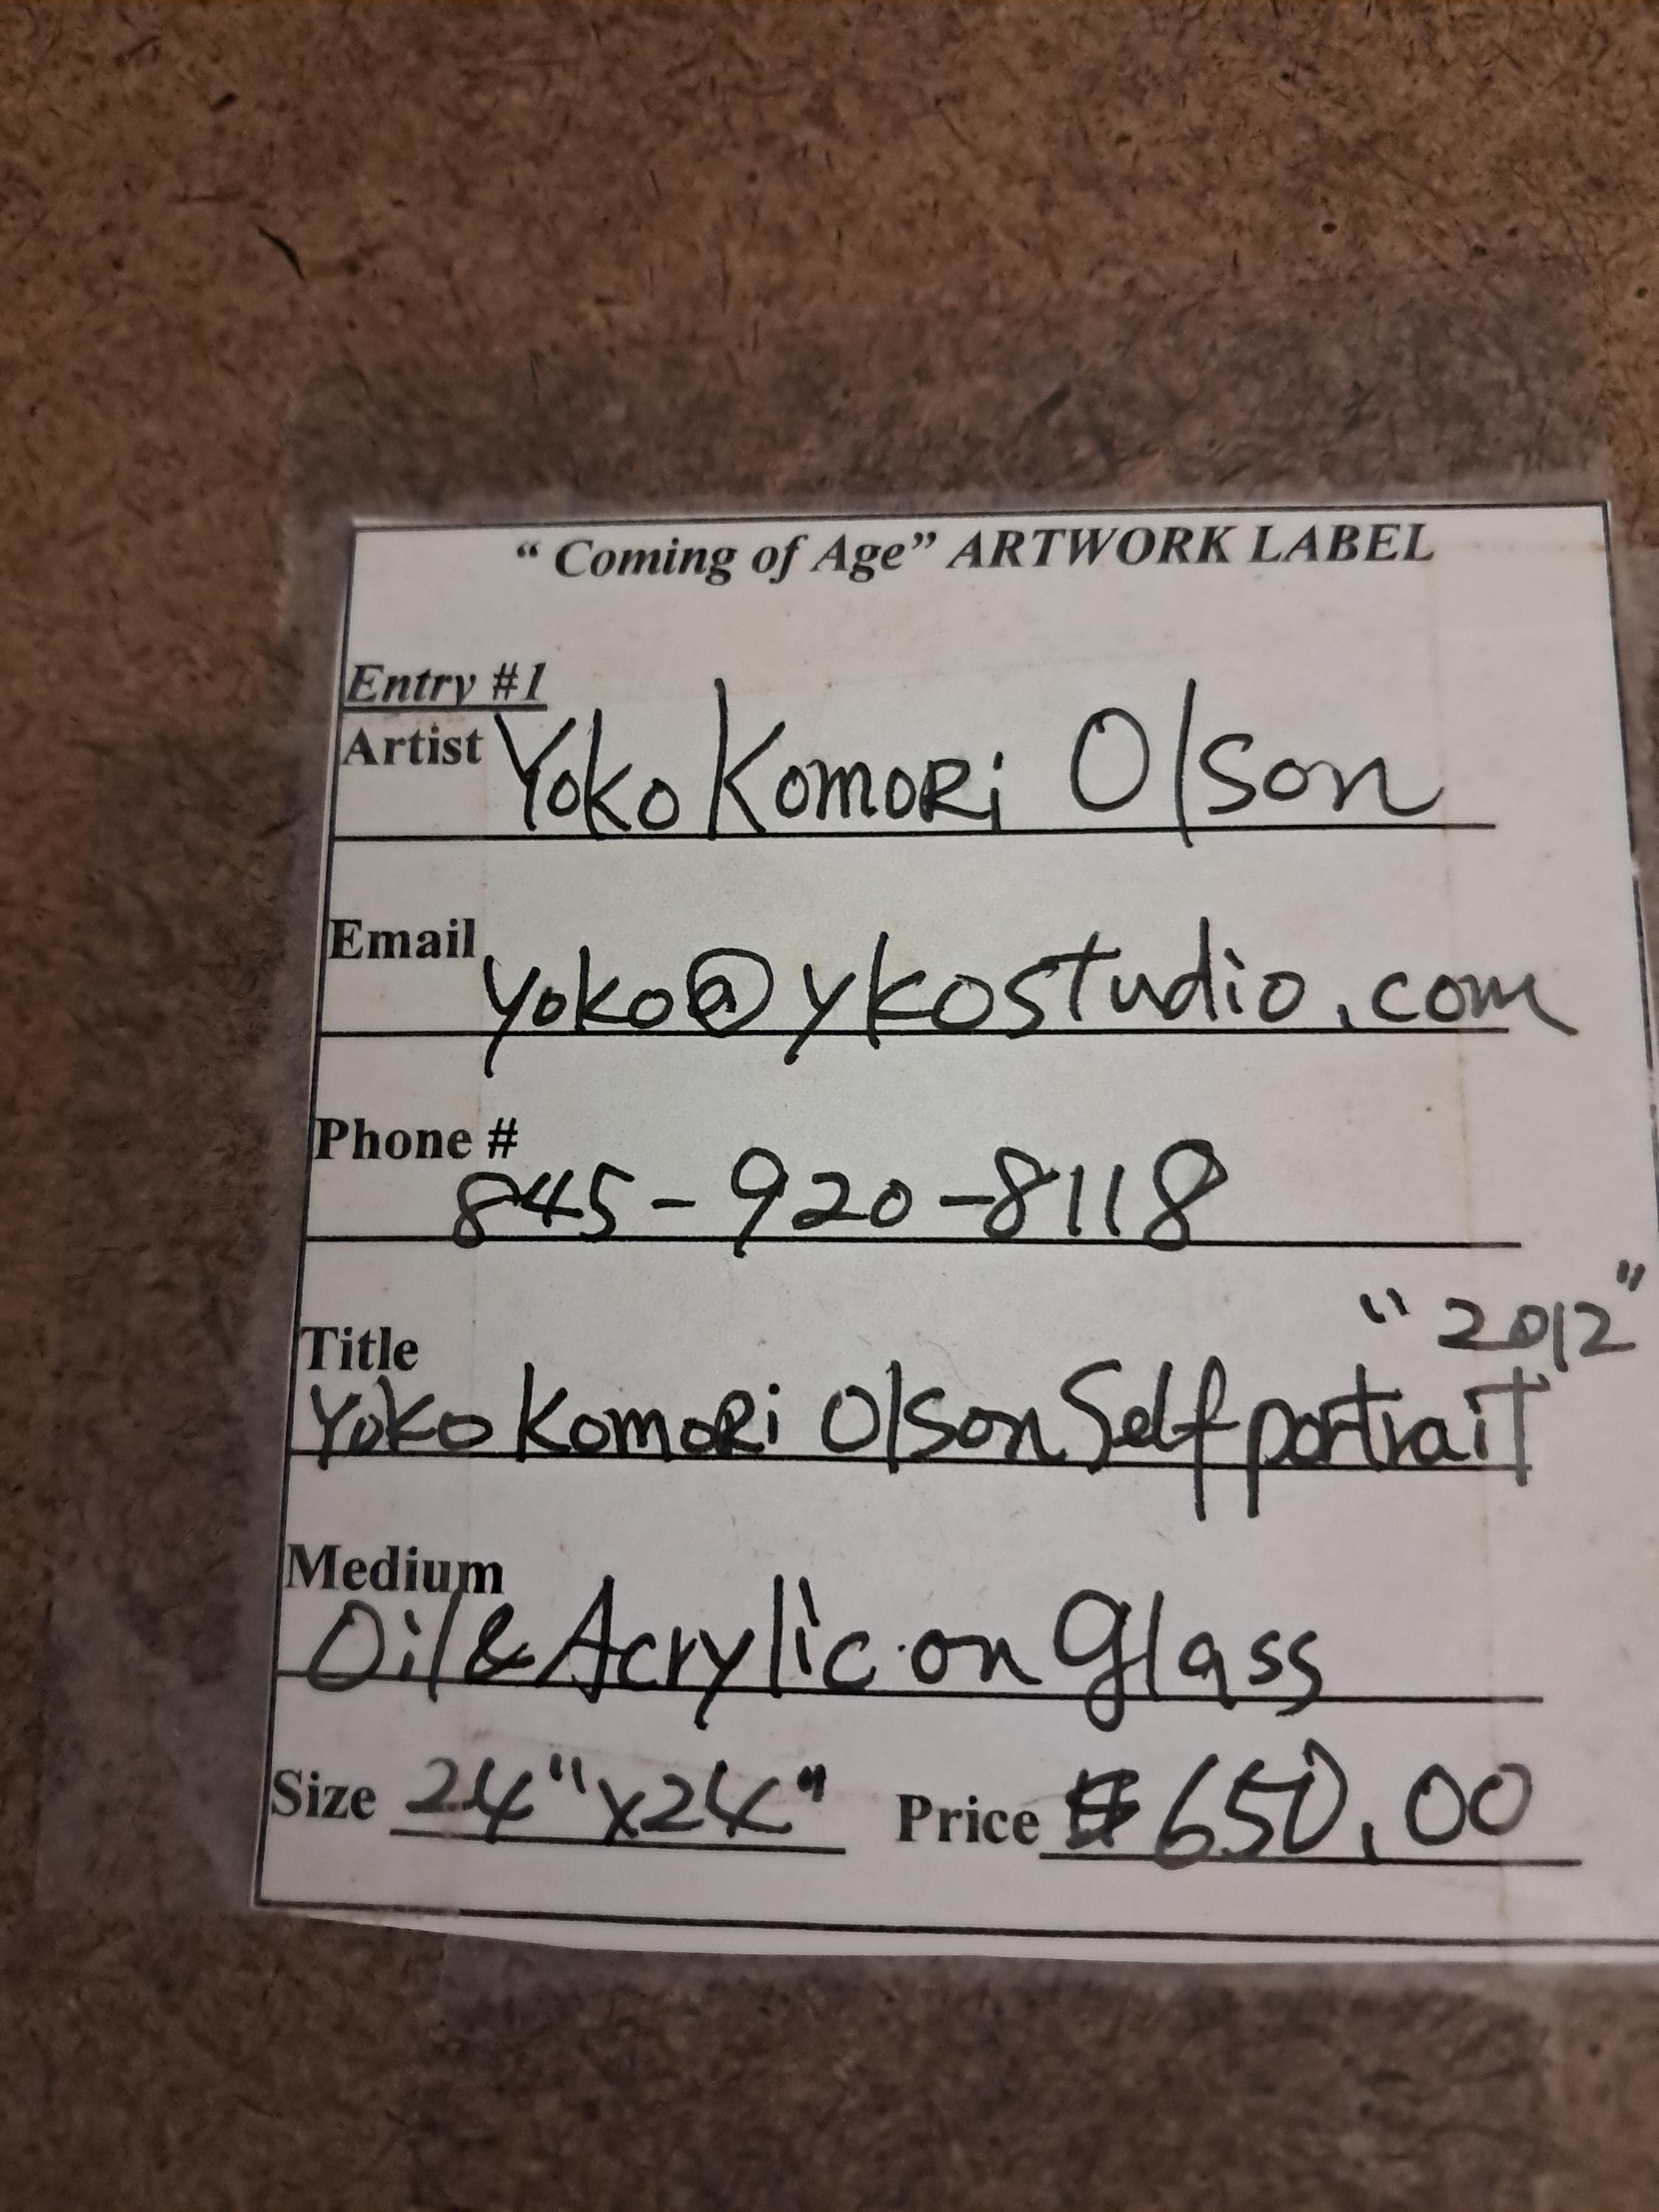 “ Coming of Age” ARTWORK LABEL
Entry #1
Artist Yoko Komori Olson
Email yoko@ykostudio.com
Phone #
845-920-8118
Title "2012"
Yoko Komori Olson Self portrait
Medium
Oil & Acrylic on Glass
Size 24"x24" Price $650.00